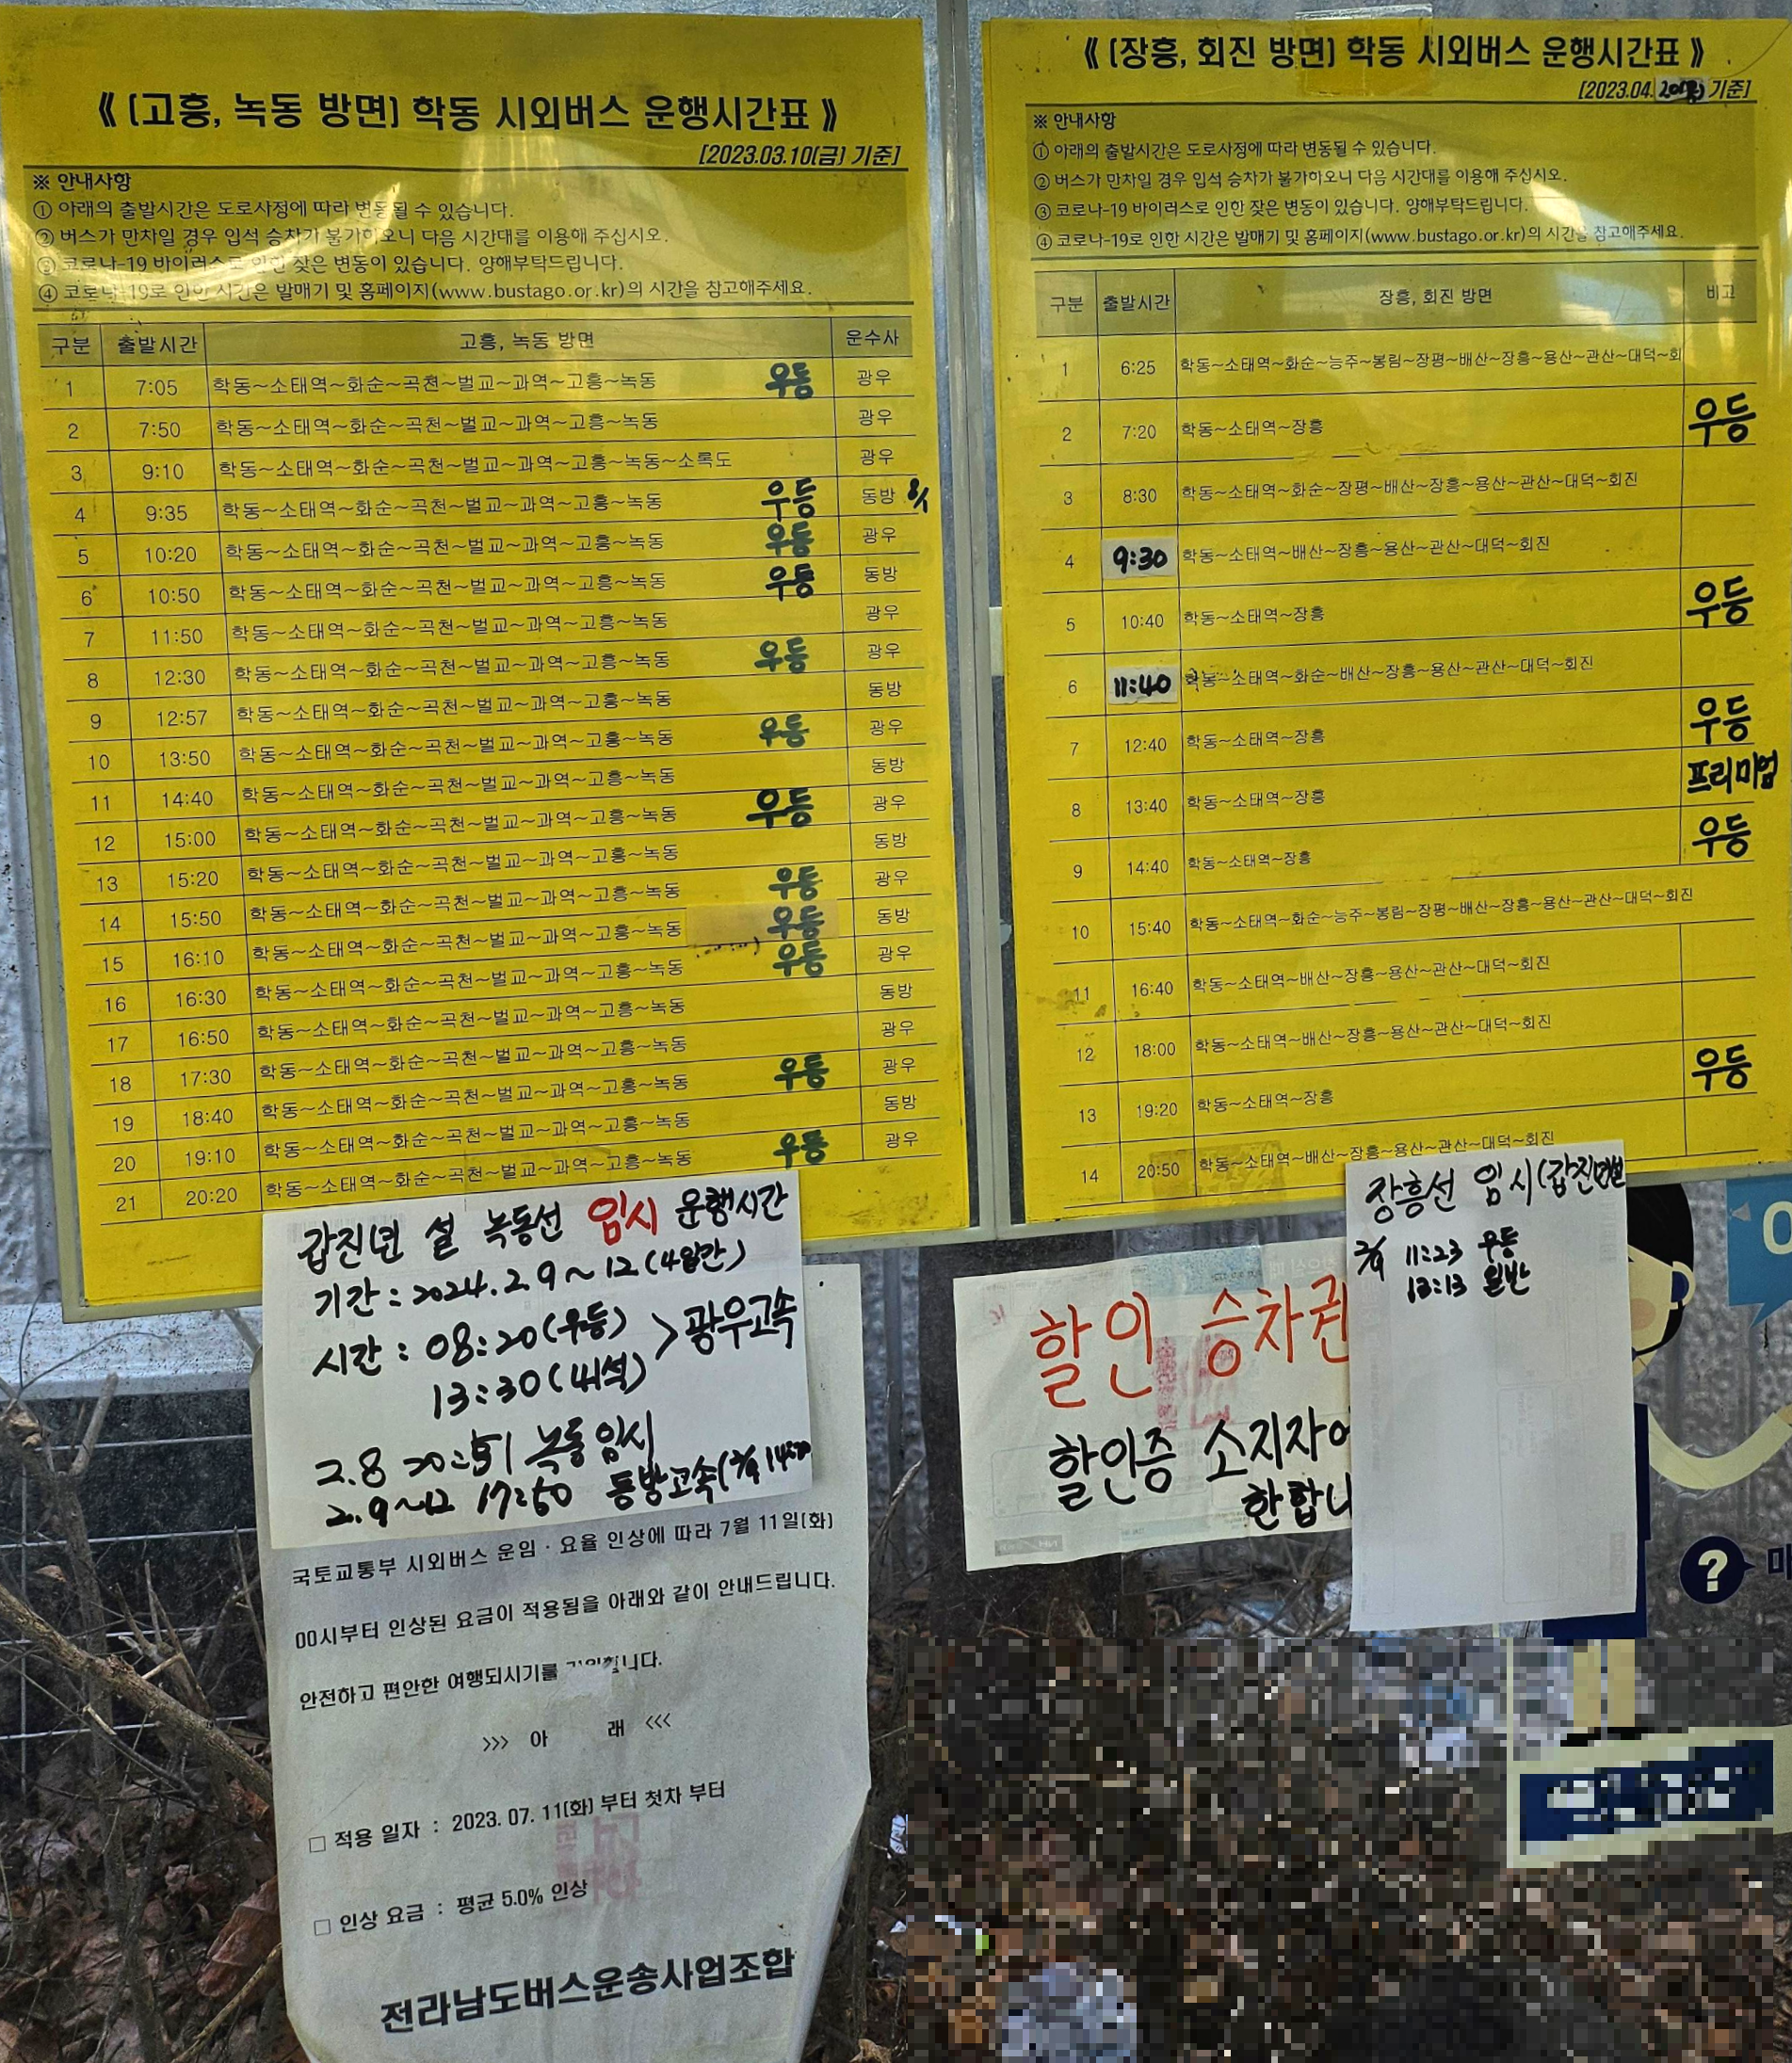 《 [고흥, 녹동 방면] 학동 시외버스 운행시간표 》
[2023.03.10(금) 기준]
※ 안내사항
① 아래의 출발시간은 도로사정에 따라 변동될 수 있습니다.
② 버스가 만차일 경우 입석 승차가 불가하오니 다음 시간대를 이용해 주십시오.
③ 코로나-19 바이러스로 인한 잦은 변동이 있습니다. 양해부탁드립니다.
④ 코로나-19로 인한 시간은 발매기 및 홈페이지(www.bustago.or.kr)의 시간을 참고해주세요.
구분 출발시간 고흥, 녹동 방면 운수사
1 7:05 학동~소태역~화순~곡천~벌교~과역~고흥~녹동 우등 광우
2 7:50 학동~소태역~화순~곡천~벌교~과역~고흥~녹동 광우
3 9:10 학동~소태역~화순~곡천~벌교~과역~고흥~녹동~소록도 광우
4 9:35 학동~소태역~화순~곡천~벌교~과역~고흥~녹동 우등 동방
5 10:20 학동~소태역~화순~곡천~벌교~과역~고흥~녹동 우등 광우
6 10:50 학동~소태역~화순~곡천~벌교~과역~고흥~녹동 우등 동방
7 11:50 학동~소태역~화순~곡천~벌교~과역~고흥~녹동 광우
8 12:30 학동~소태역~화순~곡천~벌교~과역~고흥~녹동 우등 광우
9 12:57 학동~소태역~화순~곡천~벌교~과역~고흥~녹동 동방
10 13:50 학동~소태역~화순~곡천~벌교~과역~고흥~녹동 우등 광우
11 14:40 학동~소태역~화순~곡천~벌교~과역~고흥~녹동 동방
12 15:00 학동~소태역~화순~곡천~벌교~과역~고흥~녹동 우등 광우
13 15:20 학동~소태역~화순~곡천~벌교~과역~고흥~녹동 동방
14 15:50 학동~소태역~화순~곡천~벌교~과역~고흥~녹동 우등 광우
15 16:10 학동~소태역~화순~곡천~벌교~과역~고흥~녹동 우등 동방
16 16:30 학동~소태역~화순~곡천~벌교~과역~고흥~녹동 우등 광우
17 16:50 학동~소태역~화순~곡천~벌교~과역~고흥~녹동 동방
18 17:30 학동~소태역~화순~곡천~벌교~과역~고흥~녹동 광우
19 18:40 학동~소태역~화순~곡천~벌교~과역~고흥~녹동 우등 광우
20 19:10 학동~소태역~화순~곡천~벌교~과역~고흥~녹동 동방
21 20:20 학동~소태역~화순~곡천~벌교~과역~고흥~녹동 우등 광우
갑진년 설 녹동선 임시 운행시간
기간 : 2024.2.9~12(4일간)
시간 : 08:20(우등) > 광우고속
13:30(44석)
2.8 20:51 녹동임시
2.9~12 17:50 동방고속(
국토교통부 시외버스 운임 · 요율 인상에 따라 7월 11일(화)
00시부터 인상된 요금이 적용됨을 아래와 같이 안내드립니다.
안전하고 편안한 여행되시기를
>>> 아 래 <<<
□ 적용 일자 : 2023. 07. 11(화) 부터 첫차 부터
□ 인상 요금 : 평균 5.0% 인상
전라남도버스운송사업조합
《 [장흥, 회진 방면] 학동 시외버스 운행시간표 》
[2023.04.20(목) 기준]
※ 안내사항
① 아래의 출발시간은 도로사정에 따라 변동될 수 있습니다.
② 버스가 만차일 경우 입석 승차가 불가하오니 다음 시간대를 이용해 주십시오.
③ 코로나-19 바이러스로 인한 잦은 변동이 있습니다. 양해부탁드립니다.
④ 코로나-19로 인한 시간은 발매기 및 홈페이지(www.bustago.or.kr)의 시간을 참고해주세요.
구분 출발시간 장흥, 회진 방면 비고
1 6:25 학동~소태역~화순~능주~봉림~장평~배산~장흥~용산~관산~대덕~회
2 7:20 학동~소태역~장흥 우등
3 8:30 학동~소태역~화순~장평~배산~장흥~용산~관산~대덕~회진
4 9:30 학동~소태역~배산~장흥~용산~관산~대덕~회진
5 10:40 학동~소태역~장흥 우등
6 11:40 학동~소태역~화순~배산~장흥~용산~관산~대덕~회진
7 12:40 학동~소태역~장흥 우등
8 13:40 학동~소태역~장흥 프리미엄
9 14:40 학동~소태역~장흥 우등
10 15:40 학동~소태역~화순~능주~봉림~장평~배산~장흥~용산~관산~대덕~회진
11 16:40 학동~소태역~배산~장흥~용산~관산~대덕~회진
12 18:00 학동~소태역~배산~장흥~용산~관산~대덕~회진
13 19:20 학동~소태역~장흥 우등
14 20:50 학동~소태역~배산~장흥~용산~관산~대덕~회진
장흥선 임시(갑진년설
2/9 11:23 우등
13:13 일반
할인 승차권
할인증 소지자에
한합니
?